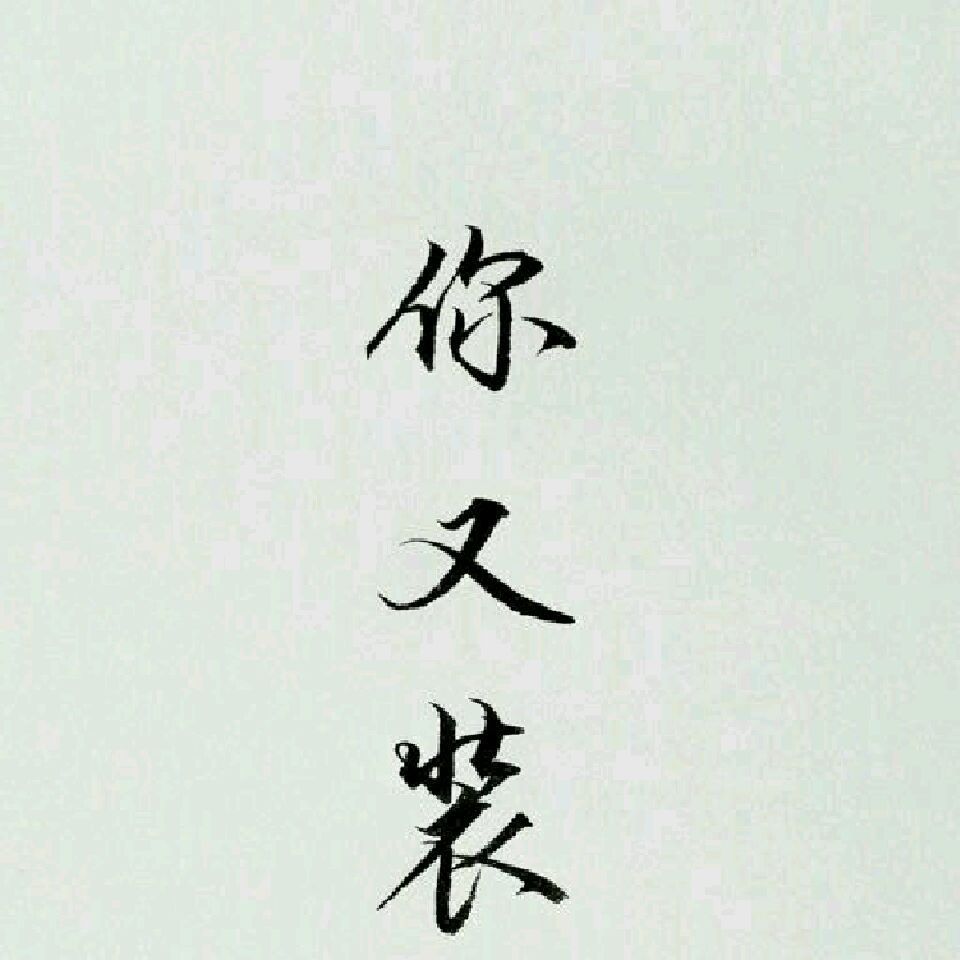 你又装